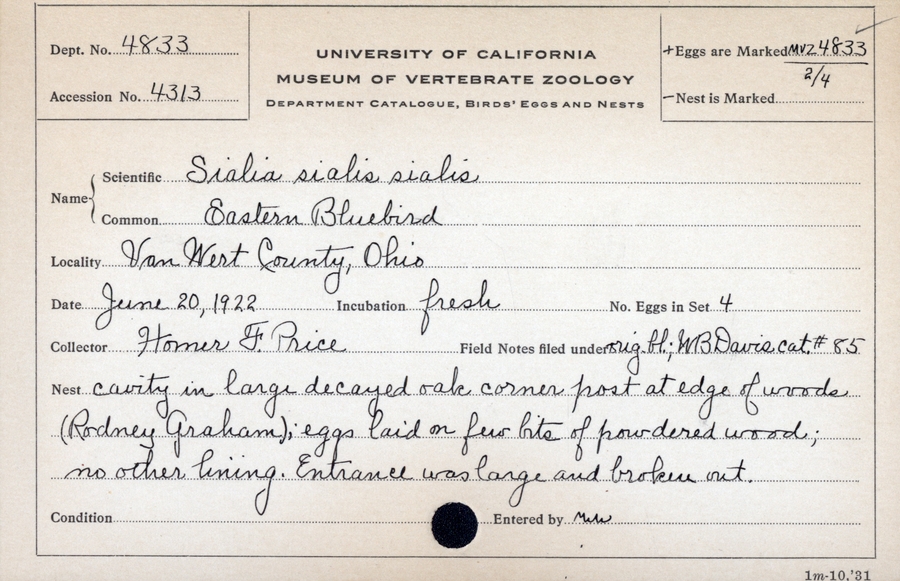 Dept. No. 4833
Accession No. 4313
UNIVERSITY OF CALIFORNIA
MUSEUM OF VERTEBRATE ZOOLOGY
DEPARTMENT CATALOGUE, BIRDS' EGGS AND NESTS
+Eggs are Marked MVZ 4833
2/4
—Nest is Marked
Name
Scientific Sialia sialis sialis
Common Eastern Bluebird
Locality Van Wert County, Ohio
Date June 20, 1922 Incubation fresh No. Eggs in Set 4
Collector Homer F. Price Field Notes filed under orig. bl; WB Davis cat. # 85
Nest cavity in large decayed oak corner post at edge of woods
(Rodney Graham); eggs laid on few bits of powdered wood;
no other lining. Entrance was large and broken out.
Condition Entered by
1m-10,'31